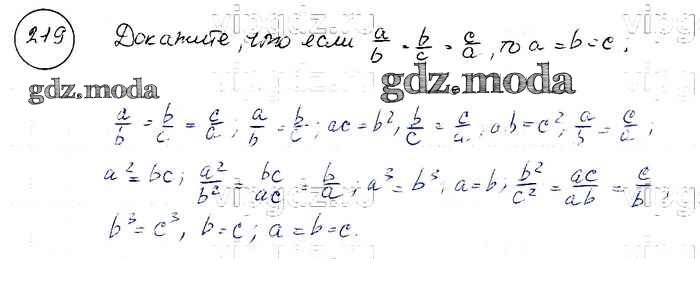 219 Докажите, что если a/b = b/c = c/a, то a = b = c.
gdz.moda gdz.moda
a/b = b/c = c/a; a/b = b/c; ac = b², b/c = c/a; ab = c²; a/b = c/a;
a² = bc; a²/b² = bc/ac = b/a; a³ = b³; a = b; b²/c² = ac/ab = c/b;
b³ = c³, b = c; a = b = c.